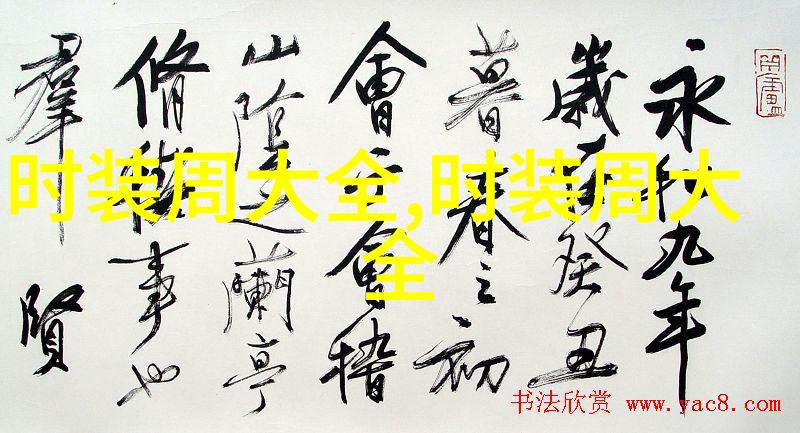 永和九年
歲在癸丑
暮春之初
會于會稽
山陰之蘭亭
脩禊事也
羣賢
时装周大全,时装周大
全
书法欣赏 www.yac8.com